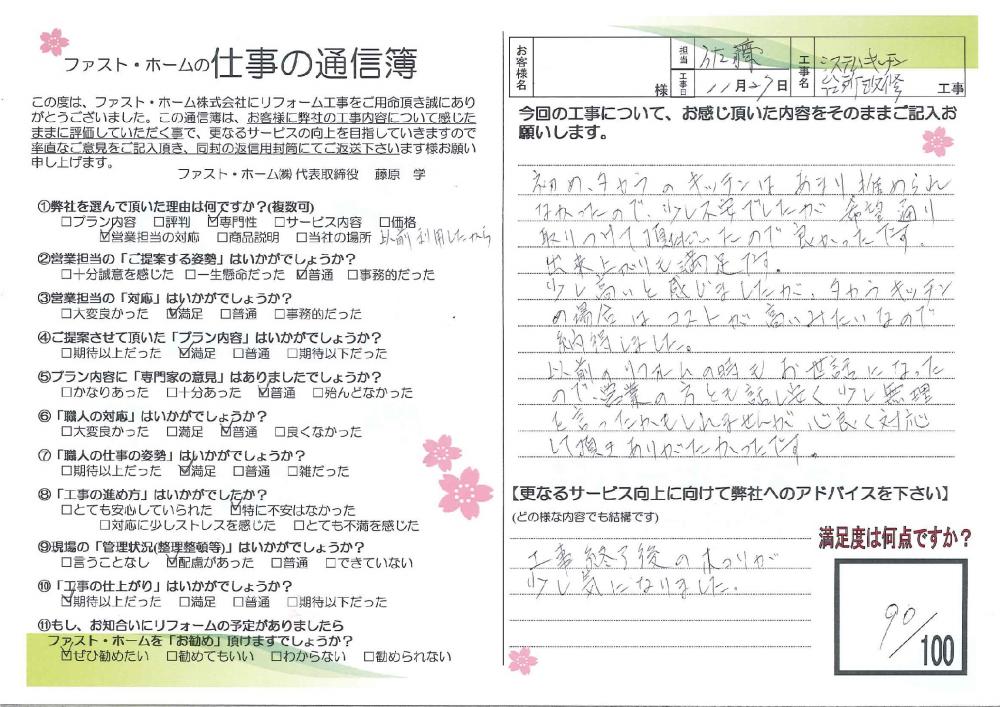 ファスト・ホームの仕事の通信簿
この度は、ファスト・ホーム株式会社にリフォーム工事をご用命頂き誠にあり
がとうございました。この通信簿は、お客様に弊社の工事内容について感じた
ままに評価していただく事で、更なるサービスの向上を目指していきますので
率直なご意見をご記入頂き、同封の返信用封筒にてご返送下さいます様お願い
申し上げます。
ファスト・ホーム㈱ 代表取締役 藤原 学
①弊社を選んで頂いた理由は何ですか？(複数可)
□プラン内容 □評判 ☑専門性 □サービス内容 □価格
☑営業担当の対応 □商品説明 □当社の場所 以前利用したから
②営業担当の「ご提案する姿勢」はいかがでしょうか？
□十分誠意を感じた □一生懸命だった ☑普通 □事務的だった
③営業担当の「対応」はいかがでしょうか？
□大変良かった ☑満足 □普通 □事務的だった
④ご提案させて頂いた「プラン内容」はいかがでしょうか？
□期待以上だった ☑満足 □普通 □期待以下だった
⑤プラン内容に「専門家の意見」はありましたでしょうか？
□かなりあった □十分あった ☑普通 □殆んどなかった
⑥「職人の対応」はいかがでしょうか？
□大変良かった □満足 ☑普通 □良くなかった
⑦「職人の仕事の姿勢」はいかがでしょうか？
□期待以上だった ☑満足 □普通 □雑だった
⑧「工事の進め方」はいかがでしたか？
□とても安心していられた ☑特に不安はなかった
□対応に少しストレスを感じた □とても不満を感じた
⑨現場の「管理状況(整理整頓等)」はいかがでしょうか？
□言うことなし ☑配慮があった □普通 □できていない
⑩「工事の仕上がり」はいかがでしょうか？
☑期待以上だった □満足 □普通 □期待以下だった
⑪もし、お知合いにリフォームの予定がありましたら
ファスト・ホームを「お勧め」頂けますでしょうか？
☑ぜひ勧めたい □勧めてもいい □わからない □勧められない
お客様名 様 担当 佐藤 工事日 11月27日 工事名 システムキッチン 台所改修 工事
今回の工事について、お感じ頂いた内容をそのままご記入お
願いします。
初め、タカラのキッチンはあまり推められ
なかったので、少し不安でしたが希望通り
取りつけて頂だいたので良かったです。
出来上がりも満足です。
少し高いと感じましたが、タカラキッチン
の場合はコストが高いみたいなので
納得しました。
以前のリフォームの時もお世話になった
ので、営業の方とも話し安く少し無理
を言ったかもしれませんが心良く対応
して頂きありがたかったです。
【更なるサービス向上に向けて弊社へのアドバイスを下さい】
(どの様な内容でも結構です)
満足度は何点ですか？
工事終了後のホコリが
少し気になりました。
90/100